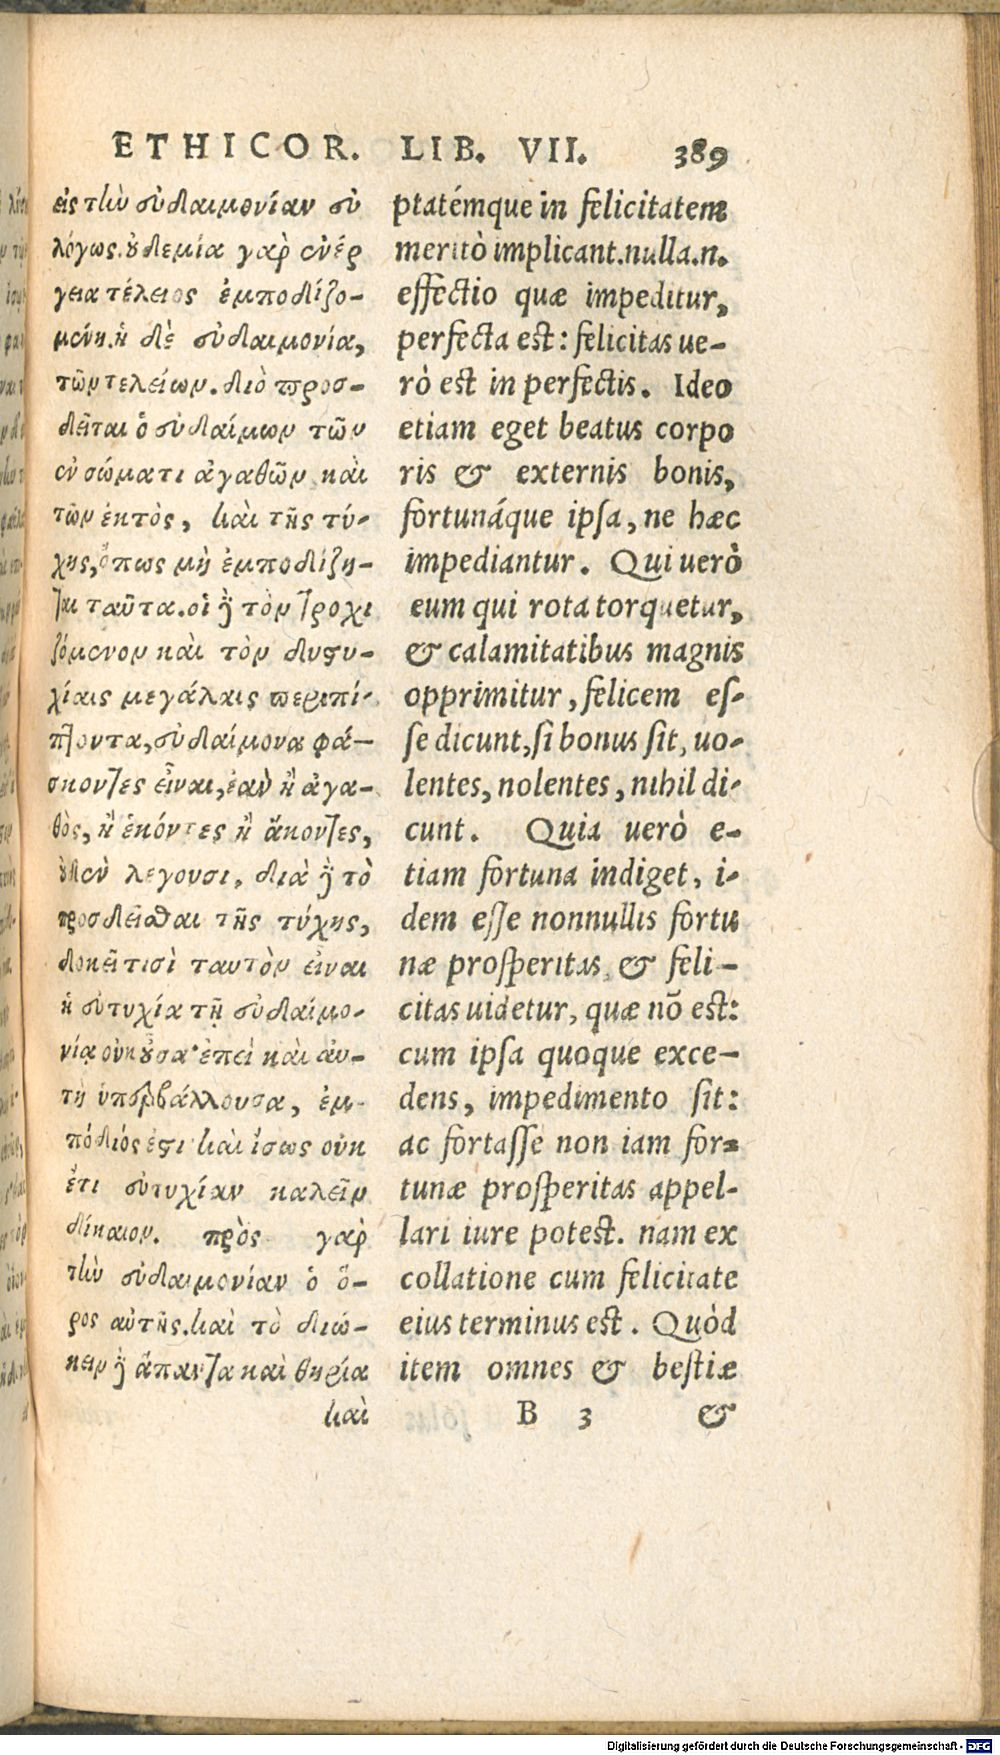 ETHICOR. LIB. VII. 389
εἰς τὴν εὐδαιμονίαν εὐ
λόγως. οὐδεμία γὰρ ἐνέρ
γεια τέλειος ἐμποδιζο-
μένη. ἡ δὲ εὐδαιμονία,
τῶν τελείων. διὸ προσ-
δεῖται ὁ εὐδαίμων τῶν
ἐν σώματι ἀγαθῶν καὶ
τῶν ἐκτὸς, καὶ τῆς τύ-
χης, ὅπως μὴ ἐμποδίζη-
ται ταῦτα. οἱ δὲ τὸν τροχι
ζόμενον καὶ τὸν δυστυ-
χίαις μεγάλαις περιπί-
πτοντα, εὐδαίμονα φά-
σκοντες εἶναι, ἐὰν ᾖ ἀγα-
θὸς, ἢ ἑκόντες ἢ ἄκοντες,
οὐδὲν λέγουσι. διὰ δὲ τὸ
προσδεῖσθαι τῆς τύχης,
δοκεῖ τισὶ ταυτὸν εἶναι
ἡ εὐτυχία τῇ εὐδαιμο-
νίᾳ οὐκ οὖσα· ἐπεὶ καὶ αὐ-
τὴ ὑπερβάλλουσα, ἐμ-
πόδιός ἐστι καὶ ἴσως οὐκ
ἔτι εὐτυχίαν καλεῖν
δίκαιον. πρὸς γὰρ
τὴν εὐδαιμονίαν ὁ ὅ-
ρος αὐτῆς. καὶ τὸ διώ-
κειν δὲ ἅπαντα καὶ θηρία
καὶ
ptatémque in felicitatem
meritò implicant. nulla .n.
effectio quæ impeditur,
perfecta est: felicitas ue-
rò est in perfectis. Ideo
etiam eget beatus corpo
ris & externis bonis,
fortunáque ipsa, ne hæc
impediantur. Qui uerò
eum qui rota torquetur,
& calamitatibus magnis
opprimitur, felicem es-
se dicunt, si bonus sit, uo-
lentes, nolentes, nihil di-
cunt. Quia uerò e-
tiam fortuna indiget, i-
dem esse nonnullis fortu
næ prosperitas, & feli-
citas uidetur, quæ nō est:
cum ipsa quoque exce-
dens, impedimento sit:
ac fortasse non iam for-
tunæ prosperitas appel-
lari iure potest. nam ex
collatione cum felicitate
eius terminus est. Quòd
item omnes & bestiæ
B 3 &
Digitalisierung gefördert durch die Deutsche Forschungsgemeinschaft - DFG